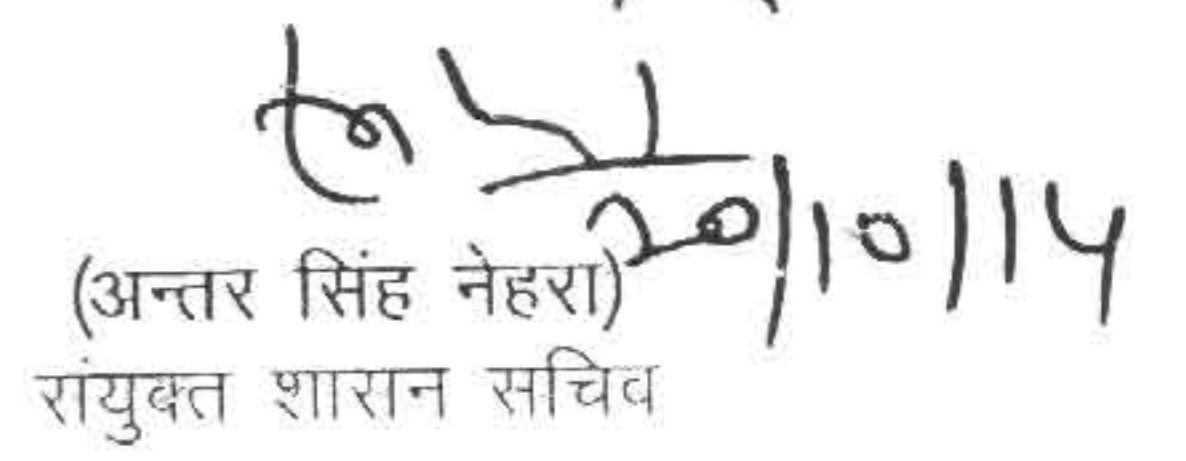 20/10/14
(अन्तर सिंह नेहरा)
संयुक्त शासन सचिव